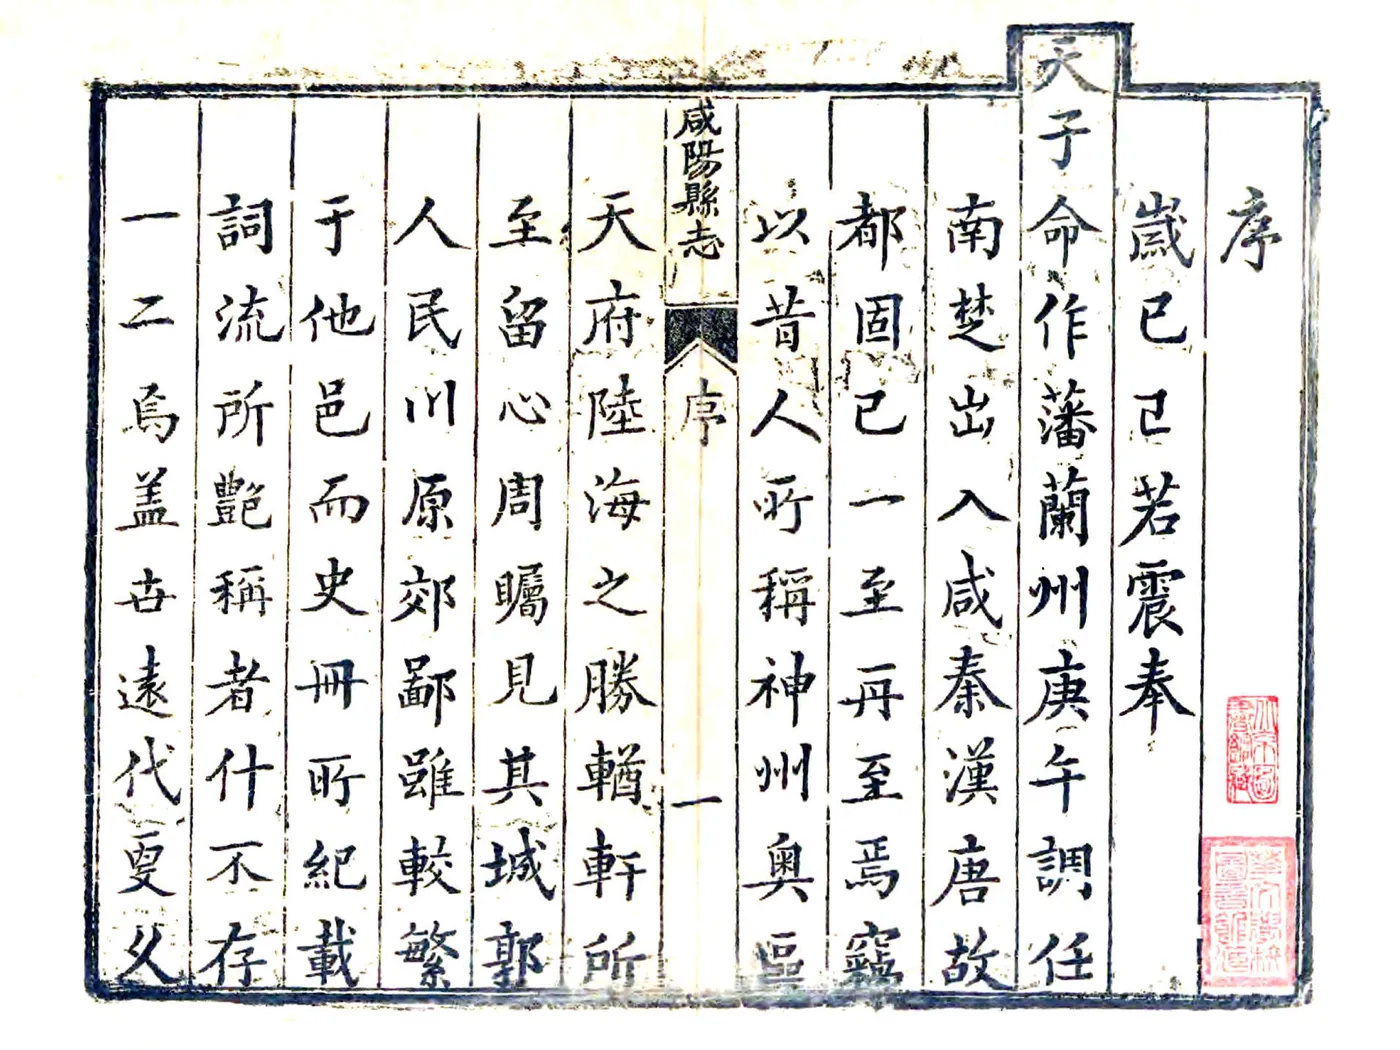 序
歲己巳若震奉
天子命作藩蘭州庚午調任
南楚出入咸秦漢唐故
都固已一至再至焉竊
以昔人所稱神州奧區
咸陽縣志 序 一
天府陸海之勝輶軒所
至留心周矚見其城郭
人民川原郊鄙雖較繁
于他邑而史冊所紀載
詞流所艷稱者什不存
一二焉盖世遠代更久